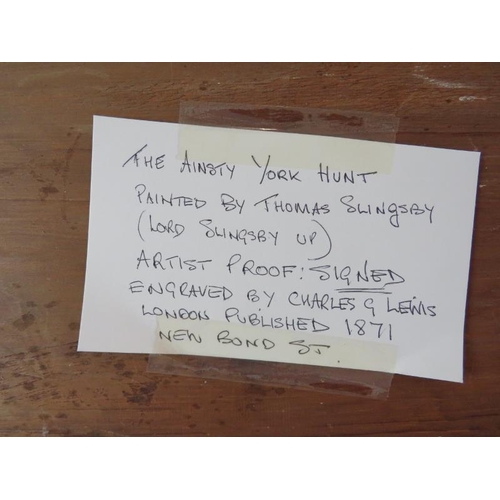 THE AINSTY YORK HUNT
PAINTED BY THOMAS SLINGSBY
(LORD SLINGSBY UP)
ARTIST PROOF: SIGNED
ENGRAVED BY CHARLES G LEWIS
LONDON PUBLISHED 1871
NEW BOND ST.